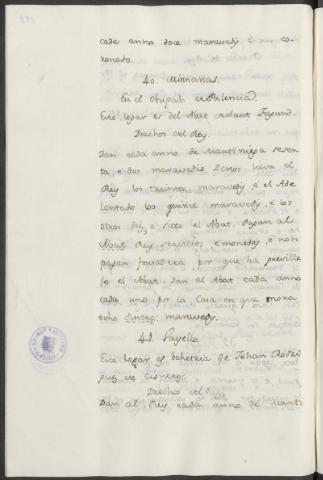 cada anno doce maravedis e un co-
ronado.
40. Minnanas.
En el Obispado de Palencia
Este logar es del Abat de Sant Fagund.
Derechos del Rey.
Dan cada anno de Martiniega sesen-
ta e dos maravedis. Denos lieva el
Rey los treinta maravedis, e el Ade
lantado los quince maravedis, e los
otros diez e siete el Abat. Pagan al
Rey servicios e monedas, e non
pagan fonsadera por que ha preville
jo el Abat. Dan al Abat cada anno
cada uno por la Casa en que mora
ocho dineros maravedis.
41. Payello
Este logar es behetria de Johan Rodri
guez de Cisneros.
Derechos del Rey
Dan al Rey cada anno de Marti